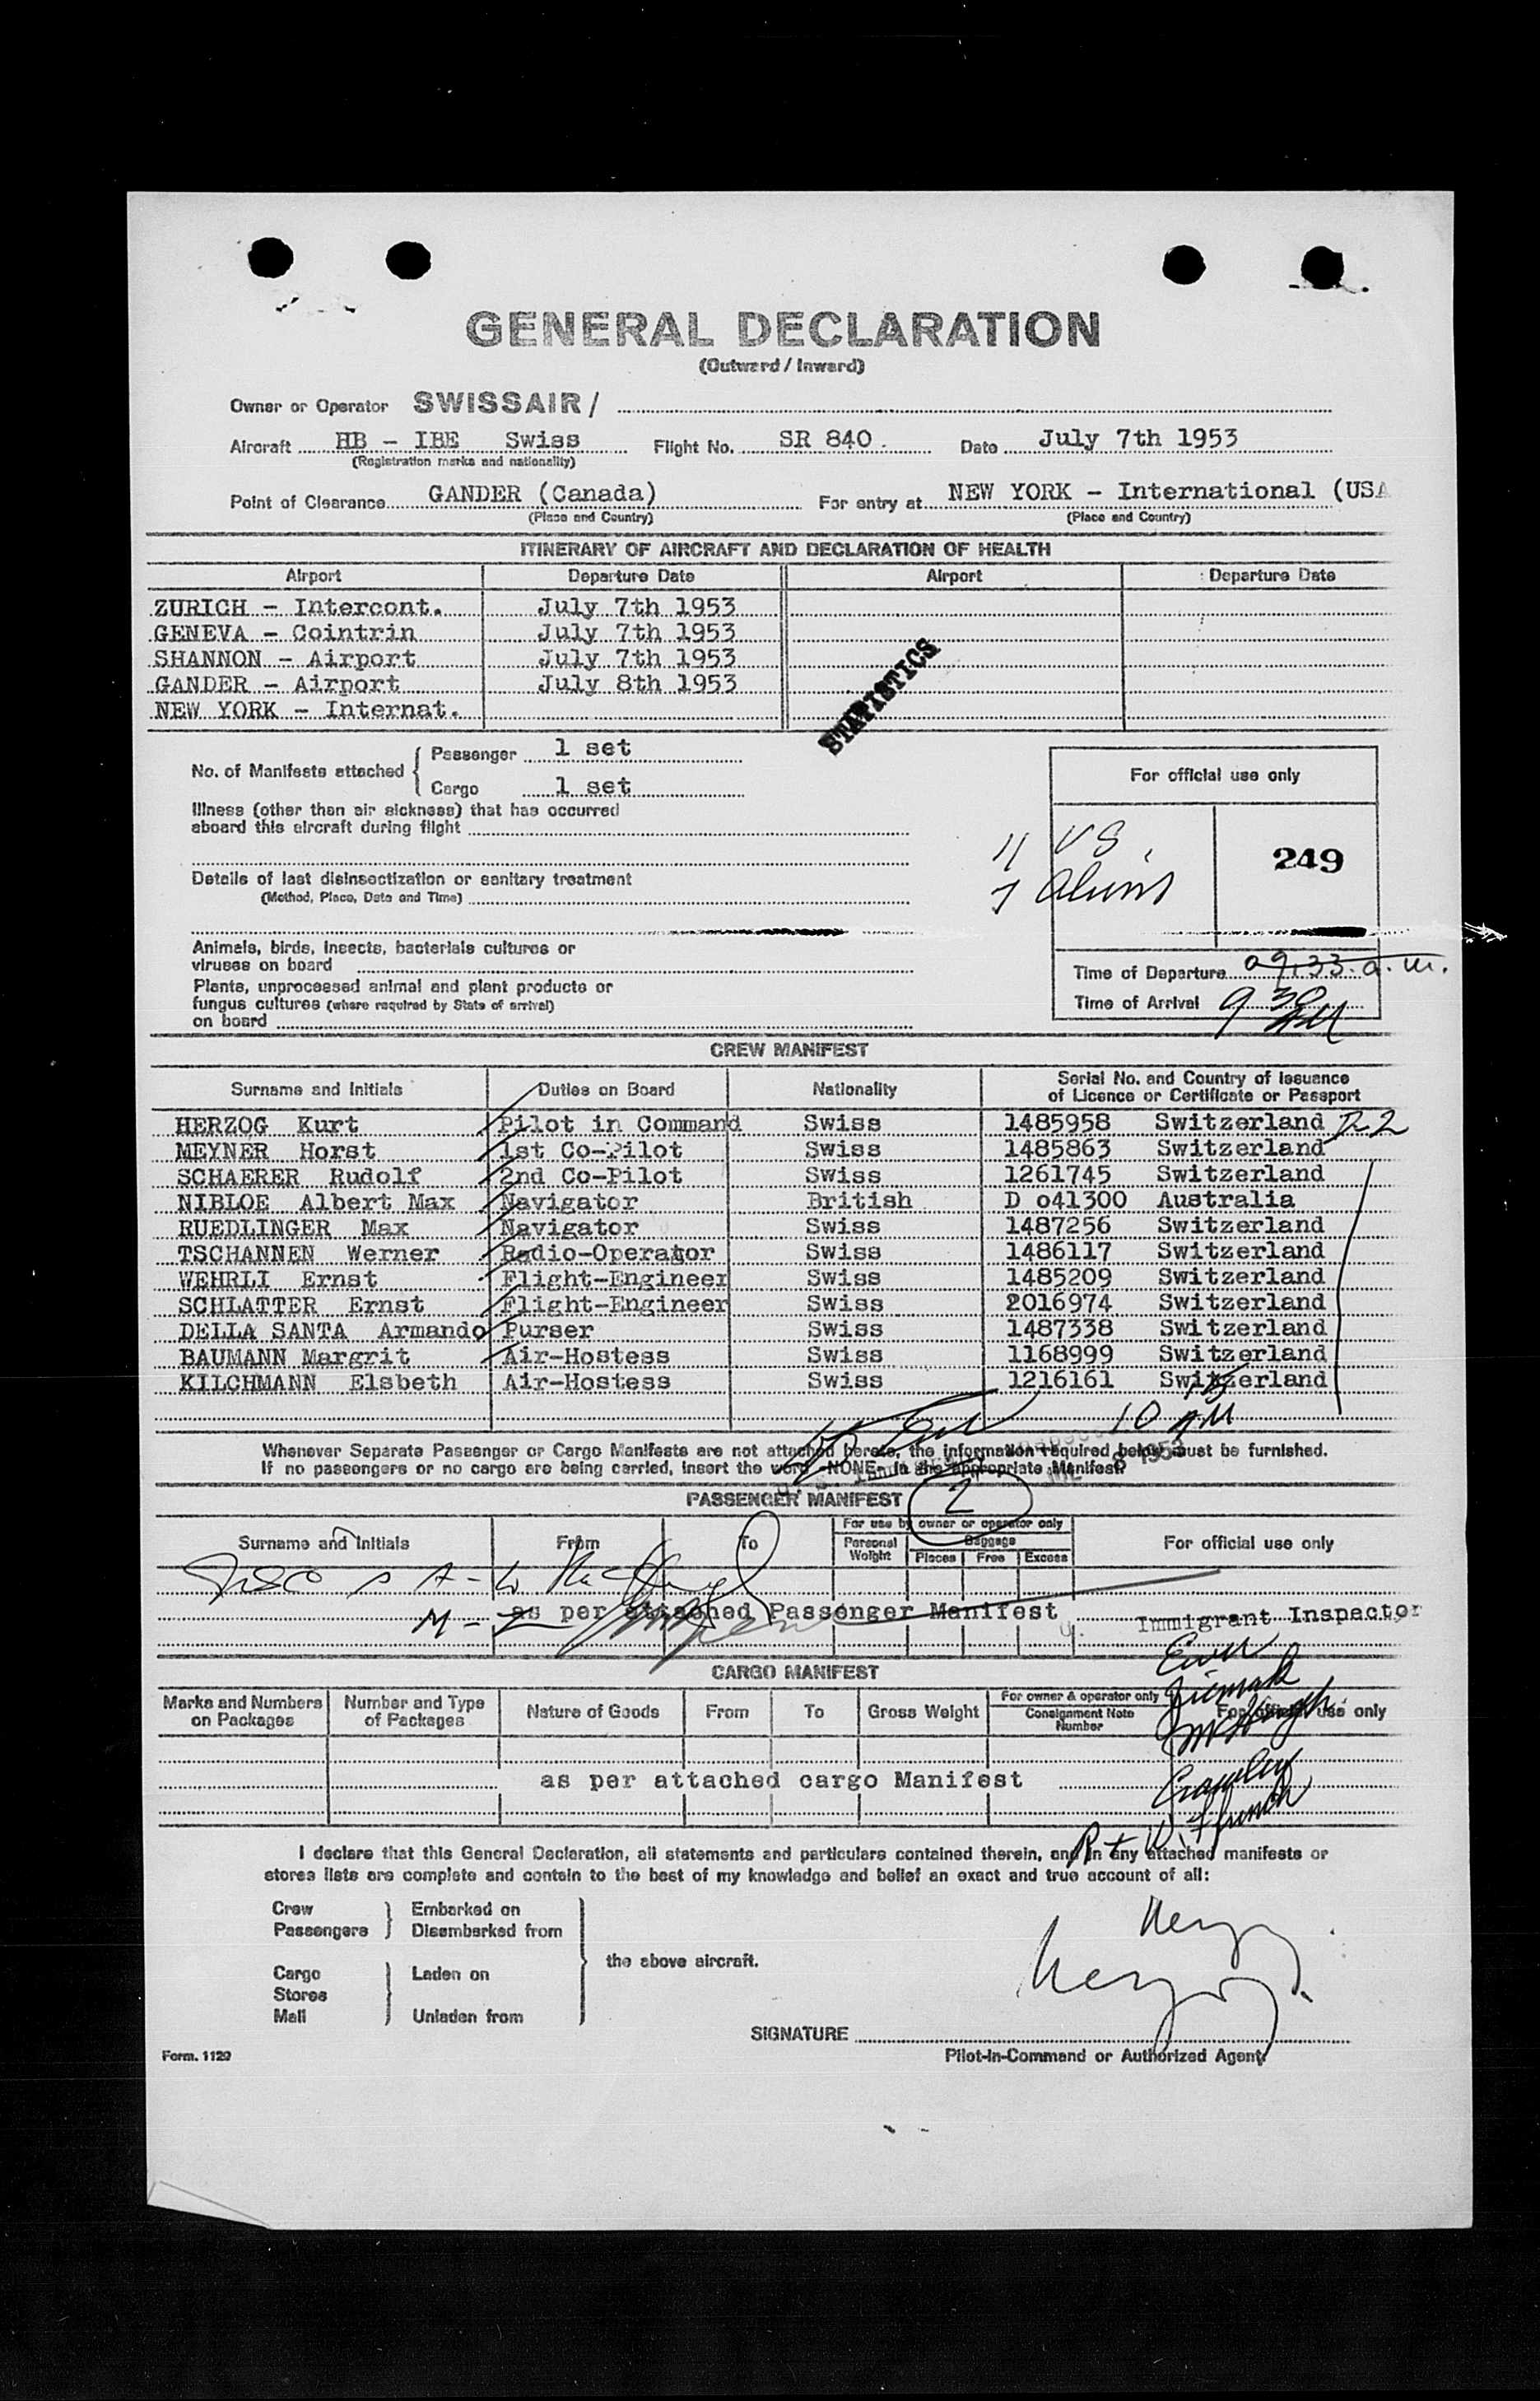 GENERAL DECLARATION
(Outward / Inward)
Owner or Operator SWISSAIR /
Aircraft HB - IBE Swiss Flight No. SR 840. Date July 7th 1953
(Registration marks and nationality)
Point of Clearance GANDER (Canada) For entry at NEW YORK - International (USA
(Place and Country) (Place and Country)
ITINERARY OF AIRCRAFT AND DECLARATION OF HEALTH
Airport Departure Date Airport Departure Date
ZURICH - Intercont. July 7th 1953
GENEVA - Cointrin July 7th 1953
SHANNON - Airport July 7th 1953
GANDER - Airport July 8th 1953
NEW YORK - Internat.
STATISTICS
No. of Manifests attached
Passenger 1 set
Cargo 1 set
For official use only
Illness (other than air sickness) that has occurred
aboard this aircraft during flight
11 US
7 Aliens
249
Details of last disinsectization or sanitary treatment
(Method, Place, Date and Time)
Animals, birds, insects, bacterials cultures or
viruses on board
Plants, unprocessed animal and plant products or
fungus cultures (where required by State of arrival)
on board
Time of Departure 09.33 a.m.
Time of Arrival 9 30 AM
CREW MANIFEST
Surname and Initials Duties on Board Nationality Serial No. and Country of Issuance
of Licence or Certificate or Passport
HERZOG Kurt Pilot in Command Swiss 1485958 Switzerland D-2
MEYNER Horst 1st Co-Pilot Swiss 1485863 Switzerland
SCHAERER Rudolf 2nd Co-Pilot Swiss 1261745 Switzerland
NIBLOE Albert Max Navigator British D o41300 Australia
RUEDLINGER Max Navigator Swiss 1487256 Switzerland
TSCHANNEN Werner Radio-Operator Swiss 1486117 Switzerland
WEHRLI Ernst Flight-Engineer Swiss 1485209 Switzerland
SCHLATTER Ernst Flight-Engineer Swiss 2016974 Switzerland
DELLA SANTA Armando Purser Swiss 1487338 Switzerland
BAUMANN Margrit Air-Hostess Swiss 1168999 Switzerland
KILCHMANN Elsbeth Air-Hostess Swiss 1216161 Switzerland
10 AM
Whenever Separate Passenger or Cargo Manifests are not attached hereto, the information required below must be furnished.
If no passengers or no cargo are being carried, insert the word -NONE- in the appropriate Manifest.
1953
PASSENGER MANIFEST 2
Surname and Initials From To For use by owner or operator only For official use only
Personal Weight Baggage
Pieces Free Excess
as per attached Passenger Manifest
Immigrant Inspector
CARGO MANIFEST
Marks and Numbers on Packages Number and Type of Packages Nature of Goods From To Gross Weight For owner & operator only Consignment Note Number For official use only
as per attached cargo Manifest
I declare that this General Declaration, all statements and particulars contained therein, and in any attached manifests or
stores lists are complete and contain to the best of my knowledge and belief an exact and true account of all:
Crew
Passengers
Embarked on
Disembarked from
the above aircraft.
Cargo
Stores
Mail
Laden on
Unladen from
Herzog
Herzog
SIGNATURE
Pilot-in-Command or Authorized Agent
Form. 1129